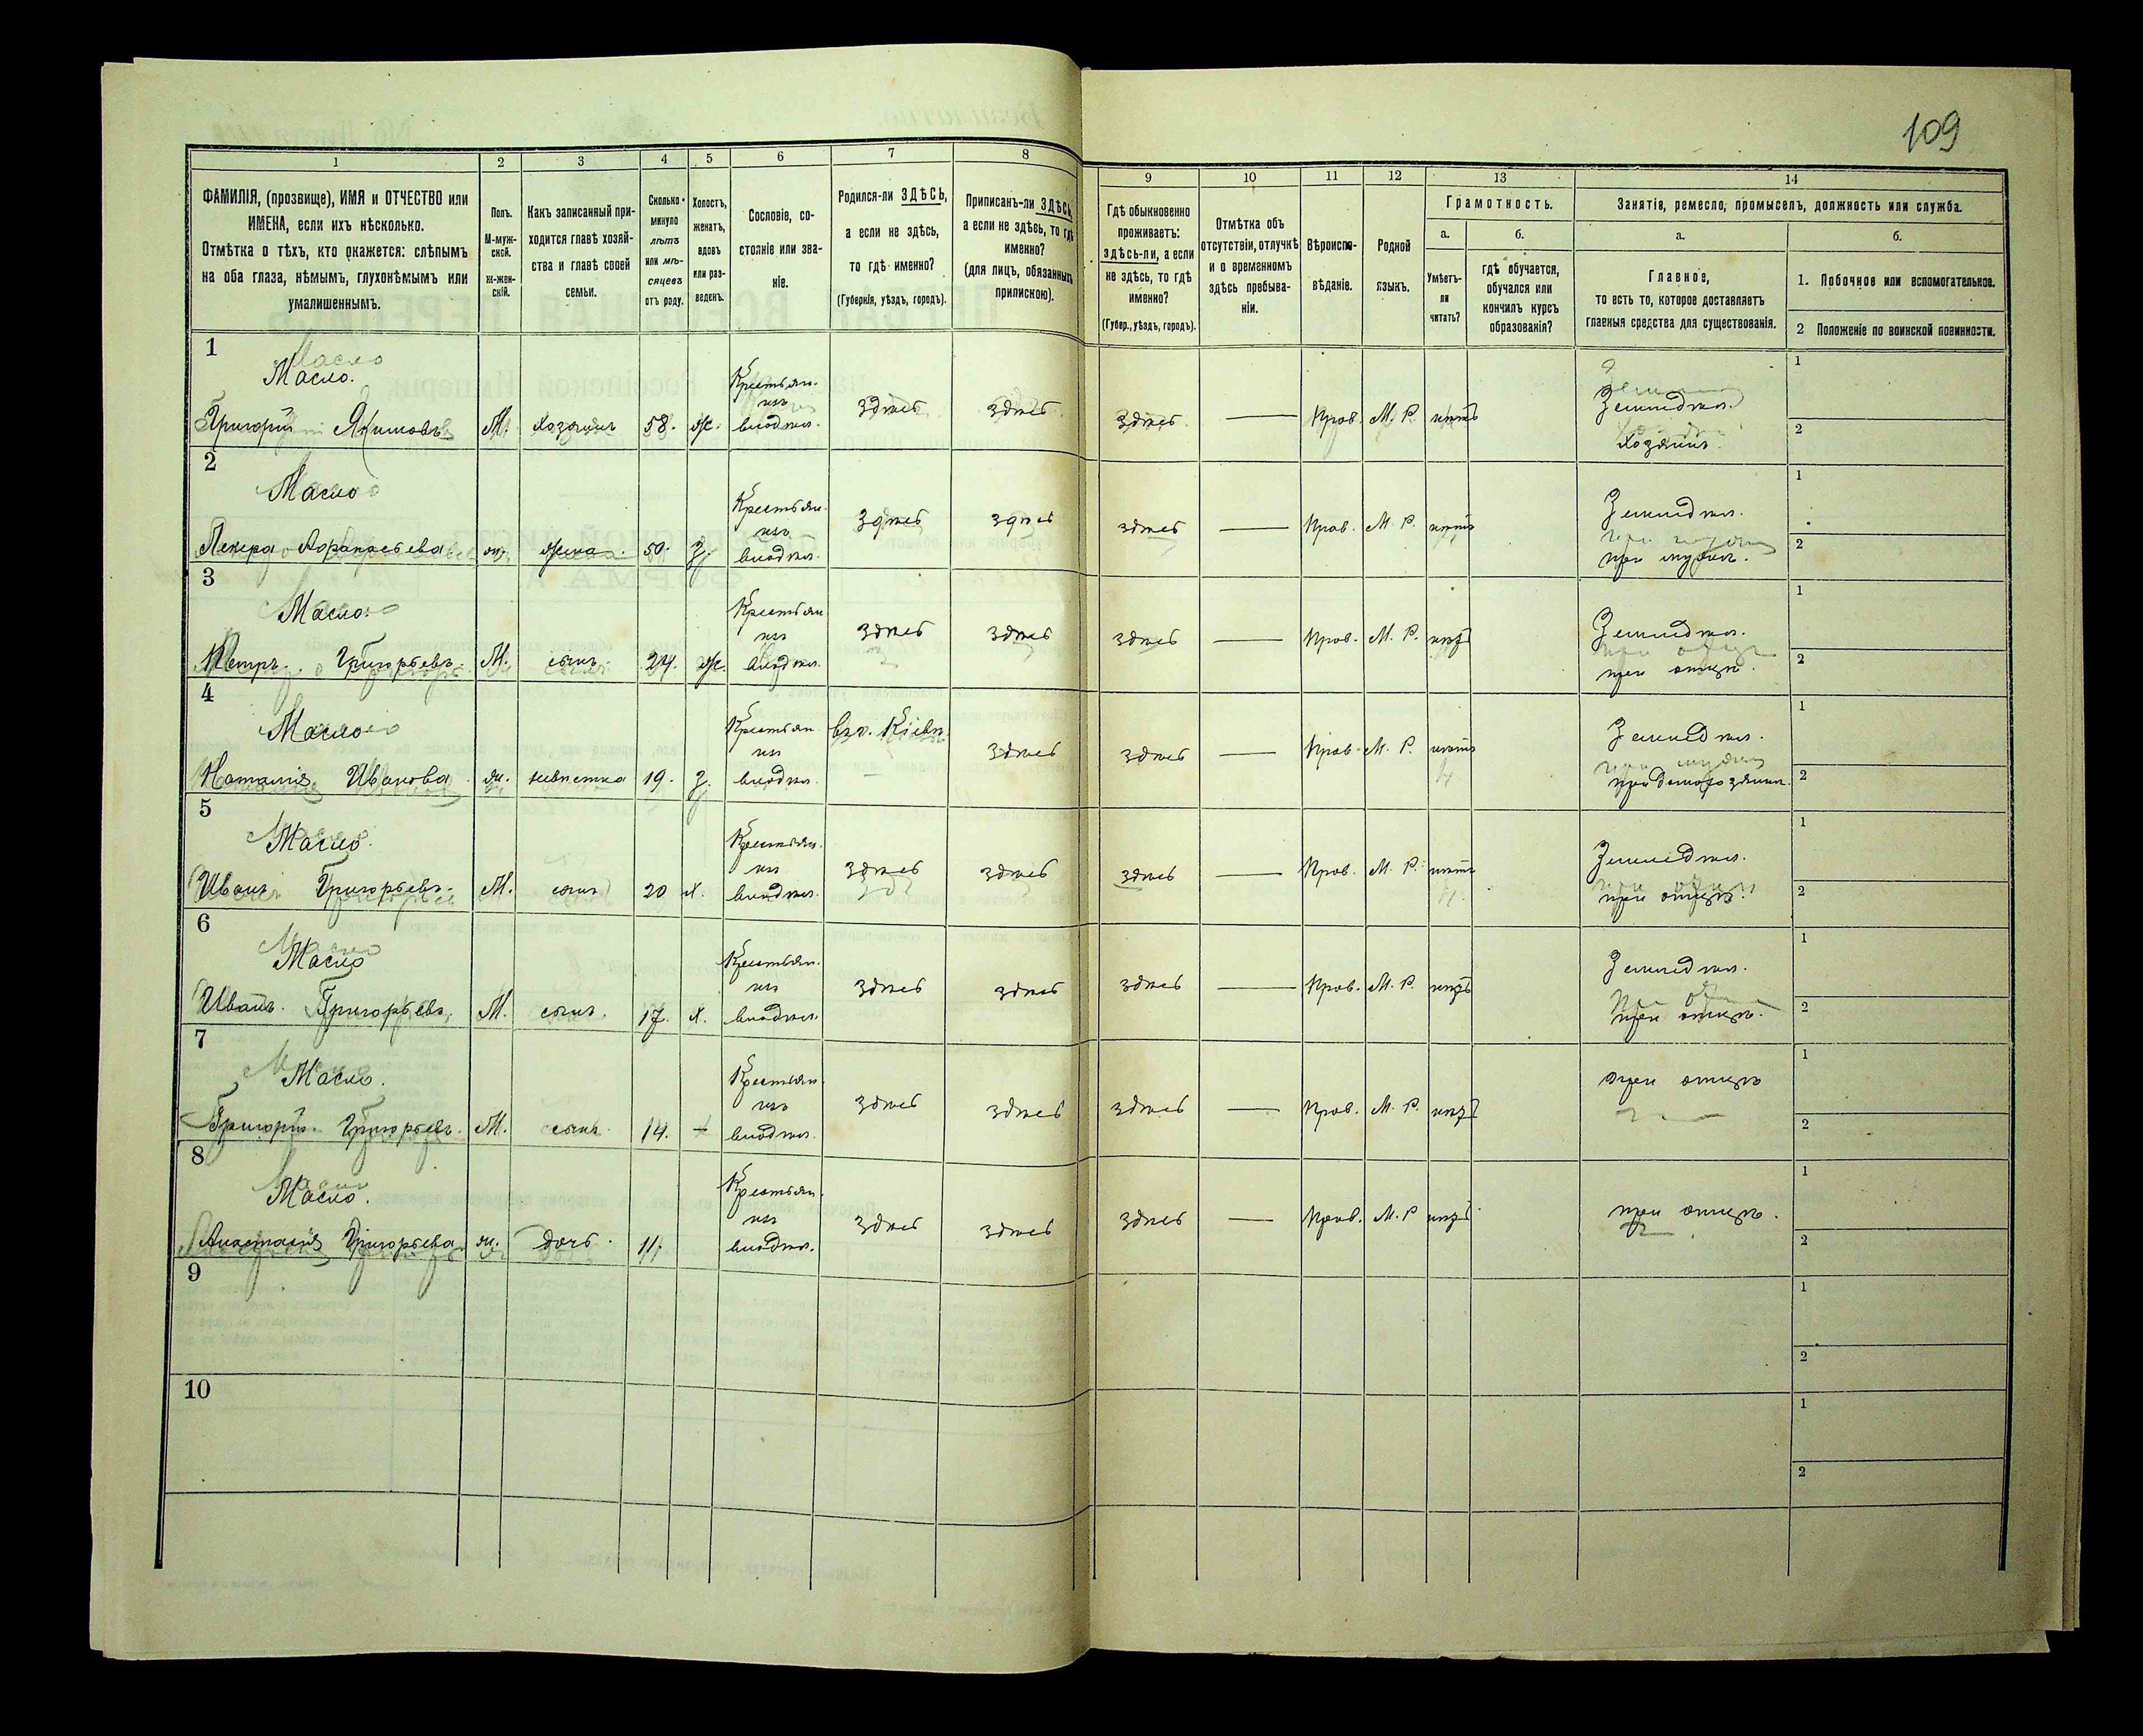 109
1 2 3 4 5 6 7 8 9 10 11 12 13 14
ФАМИЛІЯ, (прозвище), ИМЯ и ОТЧЕСТВО или
ИМЕНА, если ихъ нѣсколько.
Отмѣтка о тѣхъ, кто окажется: слѣпымъ
на оба глаза, нѣмымъ, глухонѣмымъ или
умалишеннымъ.
Полъ.
М-муж-
ской.
Ж-жен-
скій.
Какъ записанный при-
ходится главѣ хозяй-
ства и главѣ своей
семьи.
Сколько
минуло
лѣтъ
или мѣ-
сяцевъ
отъ роду.
Холостъ,
женатъ,
вдовъ
или раз-
веденъ.
Сословіе, со-
стояніе или зва-
ніе.
Родился-ли ЗДѢСЬ,
а если не здѣсь,
то гдѣ именно?
(Губернія, уѣздъ, городъ).
Приписанъ-ли ЗДѢСЬ,
а если не здѣсь, то гдѣ
именно?
(для лицъ, обязанныхъ
припискою).
Гдѣ обыкновенно
проживаетъ:
здѣсь-ли, а если
не здѣсь, то гдѣ
именно?
(Губер., уѣздъ, городъ).
Отмѣтка объ
отсутствіи, отлучкѣ
и о временномъ
здѣсь пребыва-
ніи.
Вѣроиспо-
вѣданіе.
Родной
языкъ.
Грамотность.
а.
Умѣетъ-
ли
читать?
б.
гдѣ обучается,
обучался или
кончилъ курсъ
образованія?
Занятіе, ремесло, промыселъ, должность или служба.
а.
Главное,
то есть то, которое доставляетъ
главныя средства для существованія.
б.
1. Побочное или вспомогательное.
2 Положеніе по воинской повинности.
1
Масло.
Григорій Якимовъ М. хозяинъ 58. ж. Крестьян. изъ владѣл. здѣсь здѣсь здѣсь — Прав. М. Р. нѣтъ
Земледѣл.
хозяинъ.
1
2
2
Масло
жена. 50. з. Крестьян. изъ владѣл. здѣсь здѣсь здѣсь — Прав. М. Р. нѣтъ
Земледѣл.
при мужѣ.
1
2
3
Масло.
Петръ. Григорьевъ. М. сынъ. 24. ж. Крестьян изъ владѣл. здѣсь здѣсь здѣсь — Прав. М. Р. нѣтъ
Земледѣл.
при отцѣ.
1
2
4
Масло
Наталія Иванова ж. невѣстка 19. з. Крестьян. изъ владѣл. здѣсь здѣсь — Прав. М. Р. нѣтъ
Земледѣл.
1
2
5
Масло.
Иванъ Григорьевъ. М. сынъ 20 х. Крестьян. изъ владѣл. здѣсь здѣсь здѣсь — Прав. М. Р. нѣтъ
Земледѣл.
при отцѣ.
1
2
6
Масло
Иванъ. Григорьевъ. М. сынъ. 17. х. Крестьян. изъ владѣл. здѣсь здѣсь здѣсь — Прав. М. Р. нѣтъ
Земледѣл.
при отцѣ.
1
2
7
Масло.
Григорій. Григорьевъ. М. сынъ. 14. — Крестьян. изъ владѣл. здѣсь здѣсь здѣсь — Прав. М. Р. нѣтъ
при отцѣ
1
2
8
Масло.
Анастасія Григорьева ж. дочь. 11. Крестьян. изъ владѣл. здѣсь здѣсь здѣсь — Прав. М. Р нѣтъ
при отцѣ.
1
2
9
1
2
10
1
2